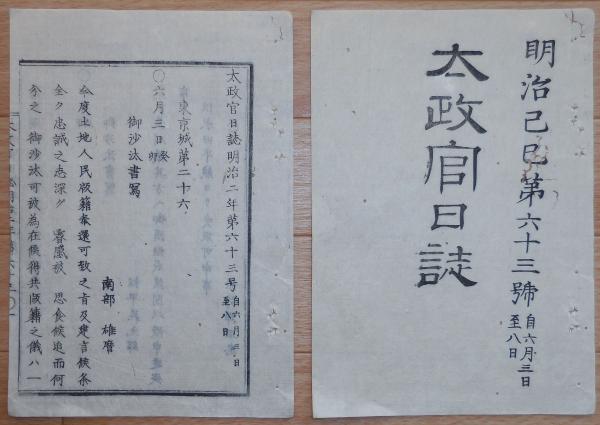 明治己巳第六十三號 自六月三日至八日
太政官日誌
太政官日誌明治二年第六十三号 自六月三日至八日
東京城第二十六
〇六月三日癸卯
御沙汰書寫
南部 雄麿
今度土地人民版籍奉還可致之旨及建言候条
全ク忠誠之志深ク 叡感被 思食候追而何
分之 御沙汰可被為在候得共版籍之儀ハ一